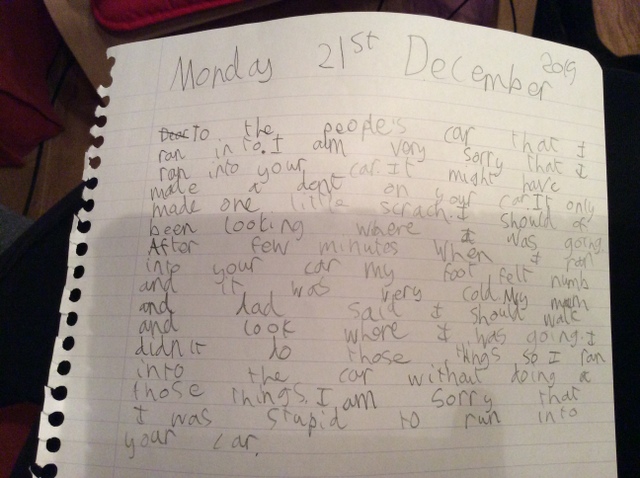 Monday 21st December 2015
Dear To the people's car that I
ran in to. I aim very sorry that I
ran into your car. It might have
made a dent on your car. It only
made one little scrach. I should of
been looking where I was going.
After few minutes when I ran
into your car my foot felt numb
and it was very cold. My mum
and dad said I should walk
and look where I was going. I
didn't do those things so I ran
into the car without doing a
those things. I am sorry that
I was stupid to run into
your car.